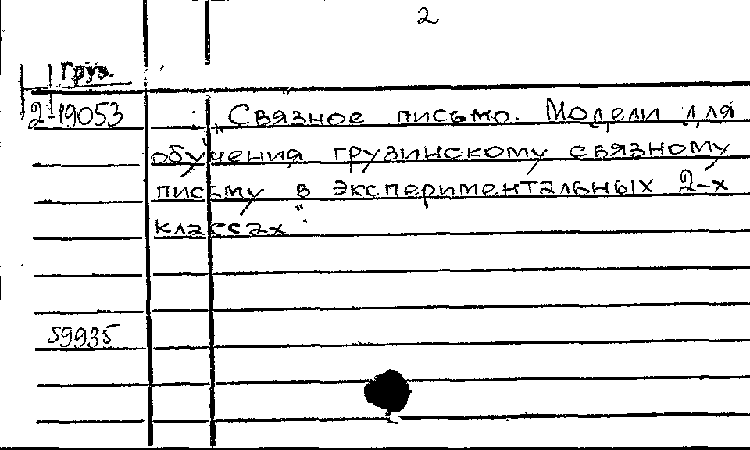 2
Груз.
2-19053 „Связное письмо. Модели для
обучения грузинскому связному
письму в экспериментальных 2-х
классах".
59935